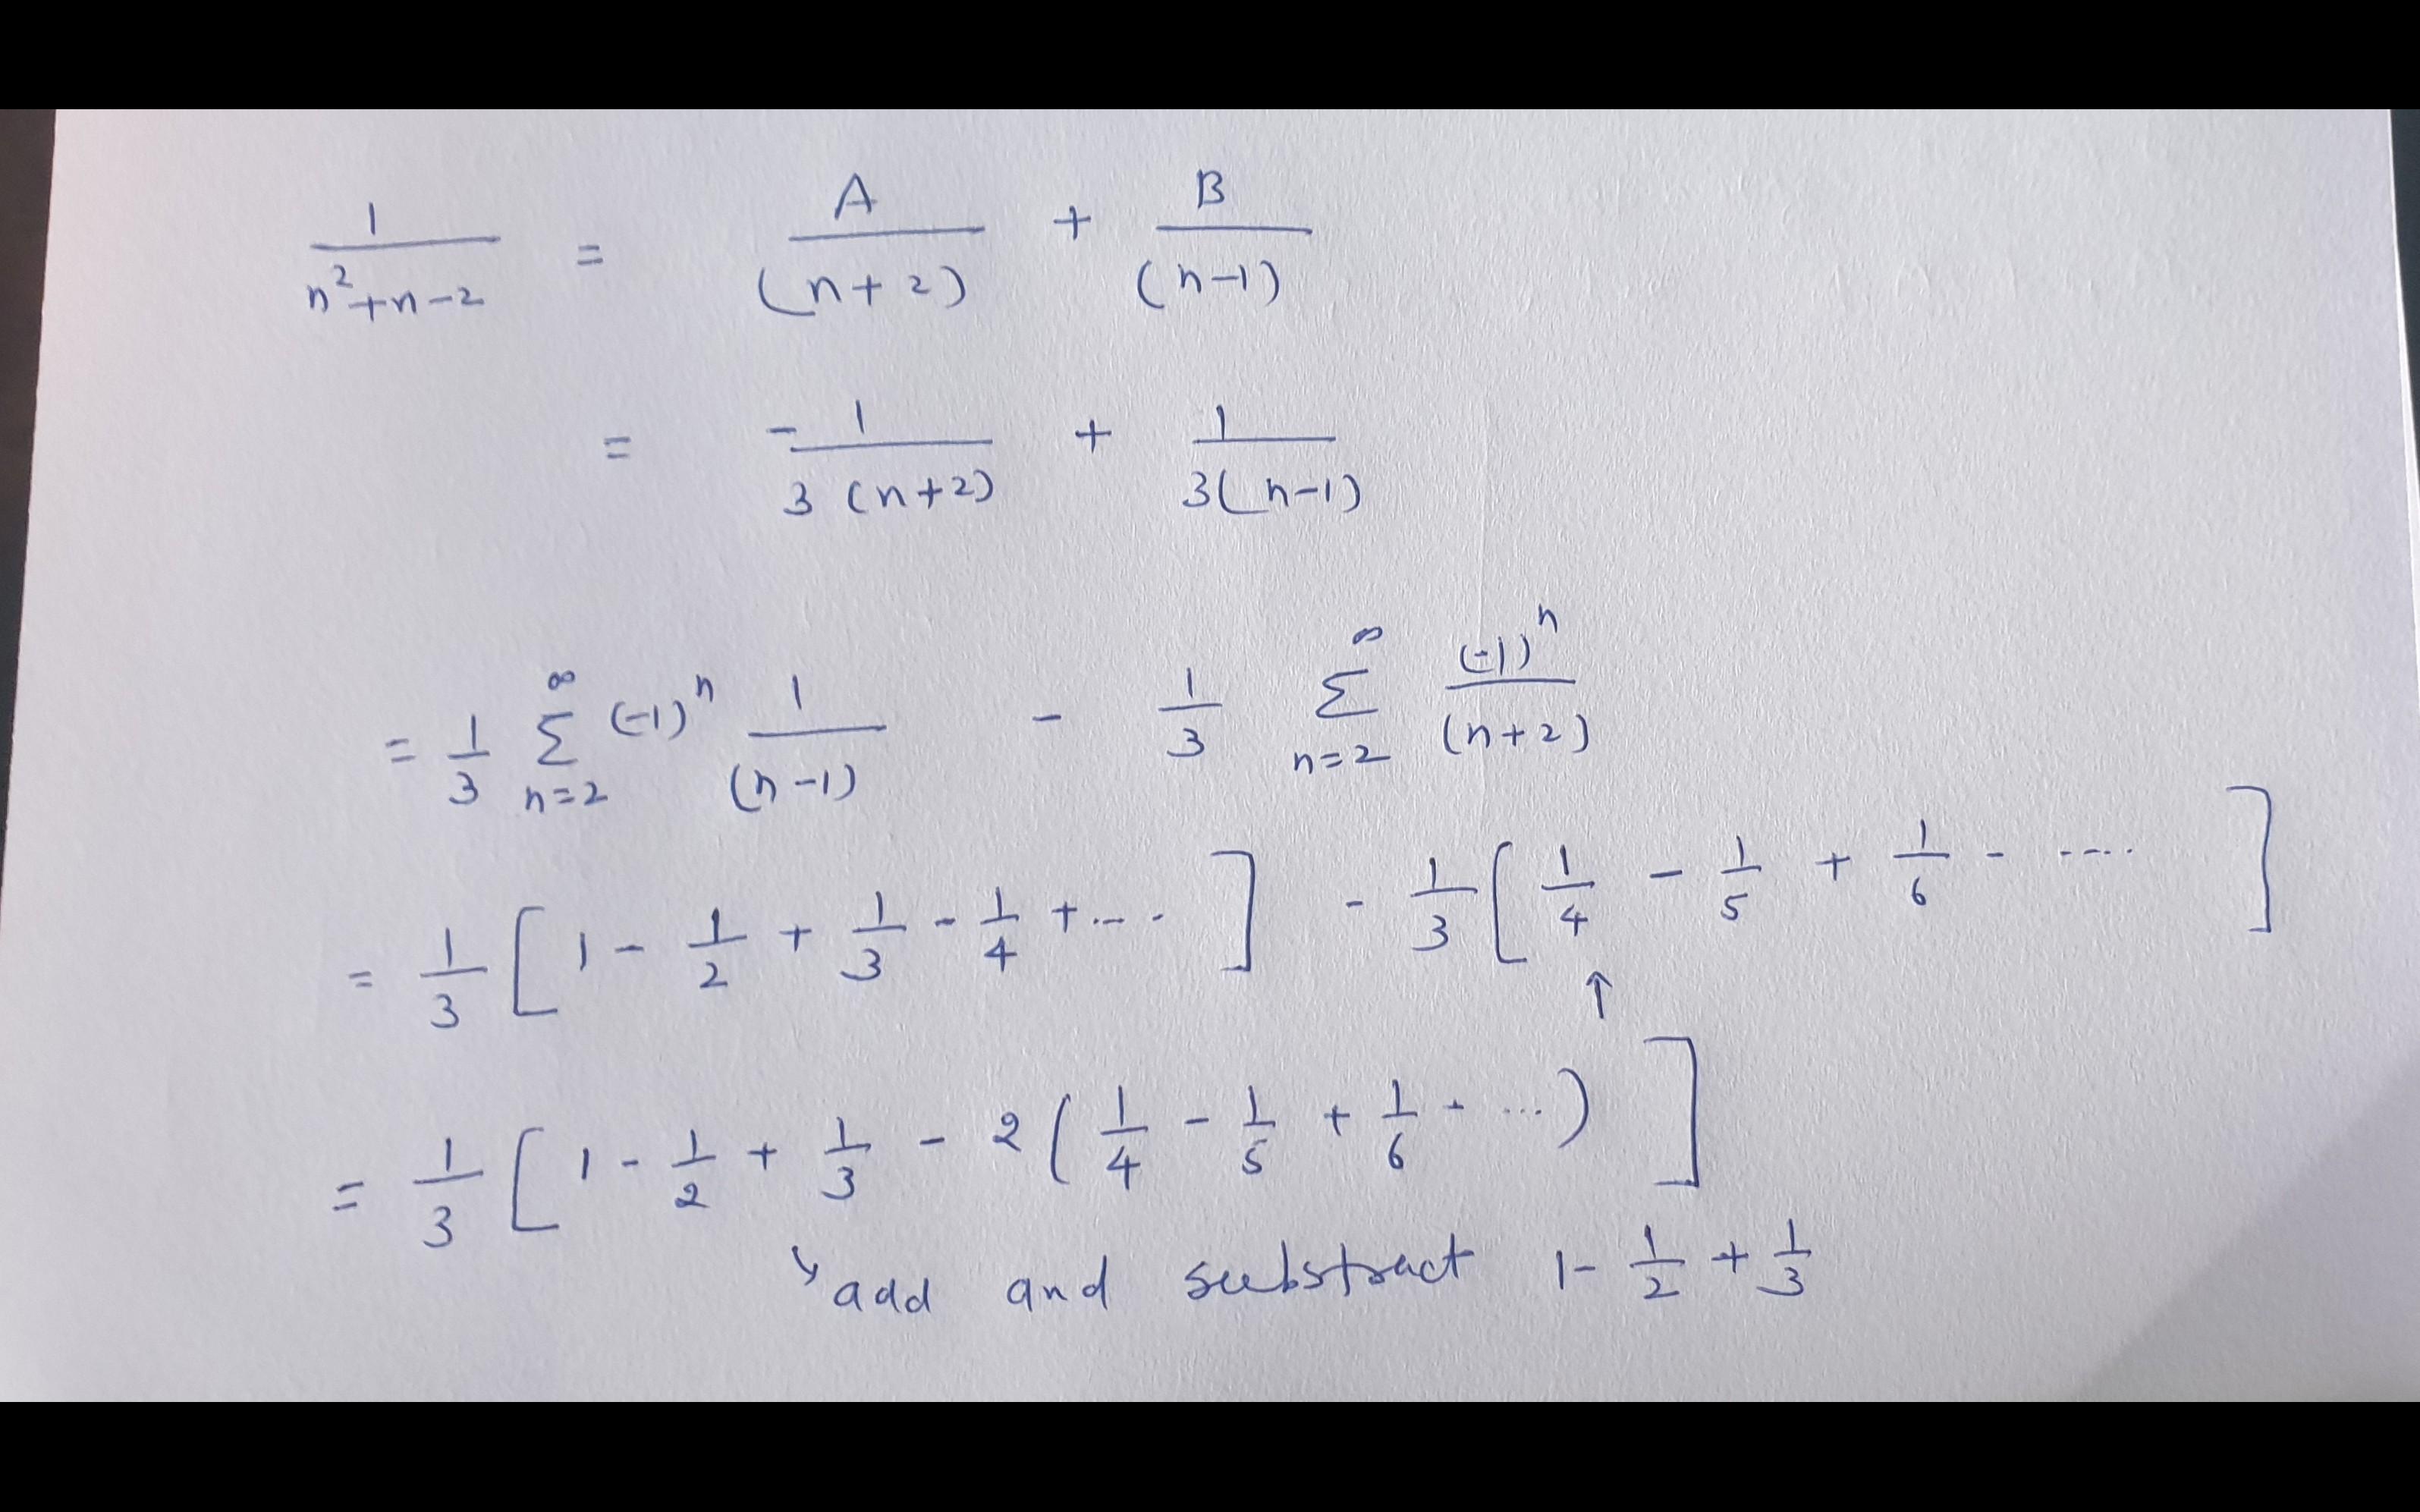 1/(n²+n-2) = A/(n+2) + B/(n-1)
= -1/(3(n+2)) + 1/(3(n-1))
= 1/3 ∑_{n=2}^{∞} (-1)ⁿ 1/(n-1) - 1/3 ∑_{n=2}^{∞} (-1)ⁿ/(n+2)
= 1/3 [1 - 1/2 + 1/3 - 1/4 + ....] - 1/3 [1/4 - 1/5 + 1/6 - ....]
↑
= 1/3 [1 - 1/2 + 1/3 - 2(1/4 - 1/5 + 1/6 - ...)]
↘ add and substract 1 - 1/2 + 1/3